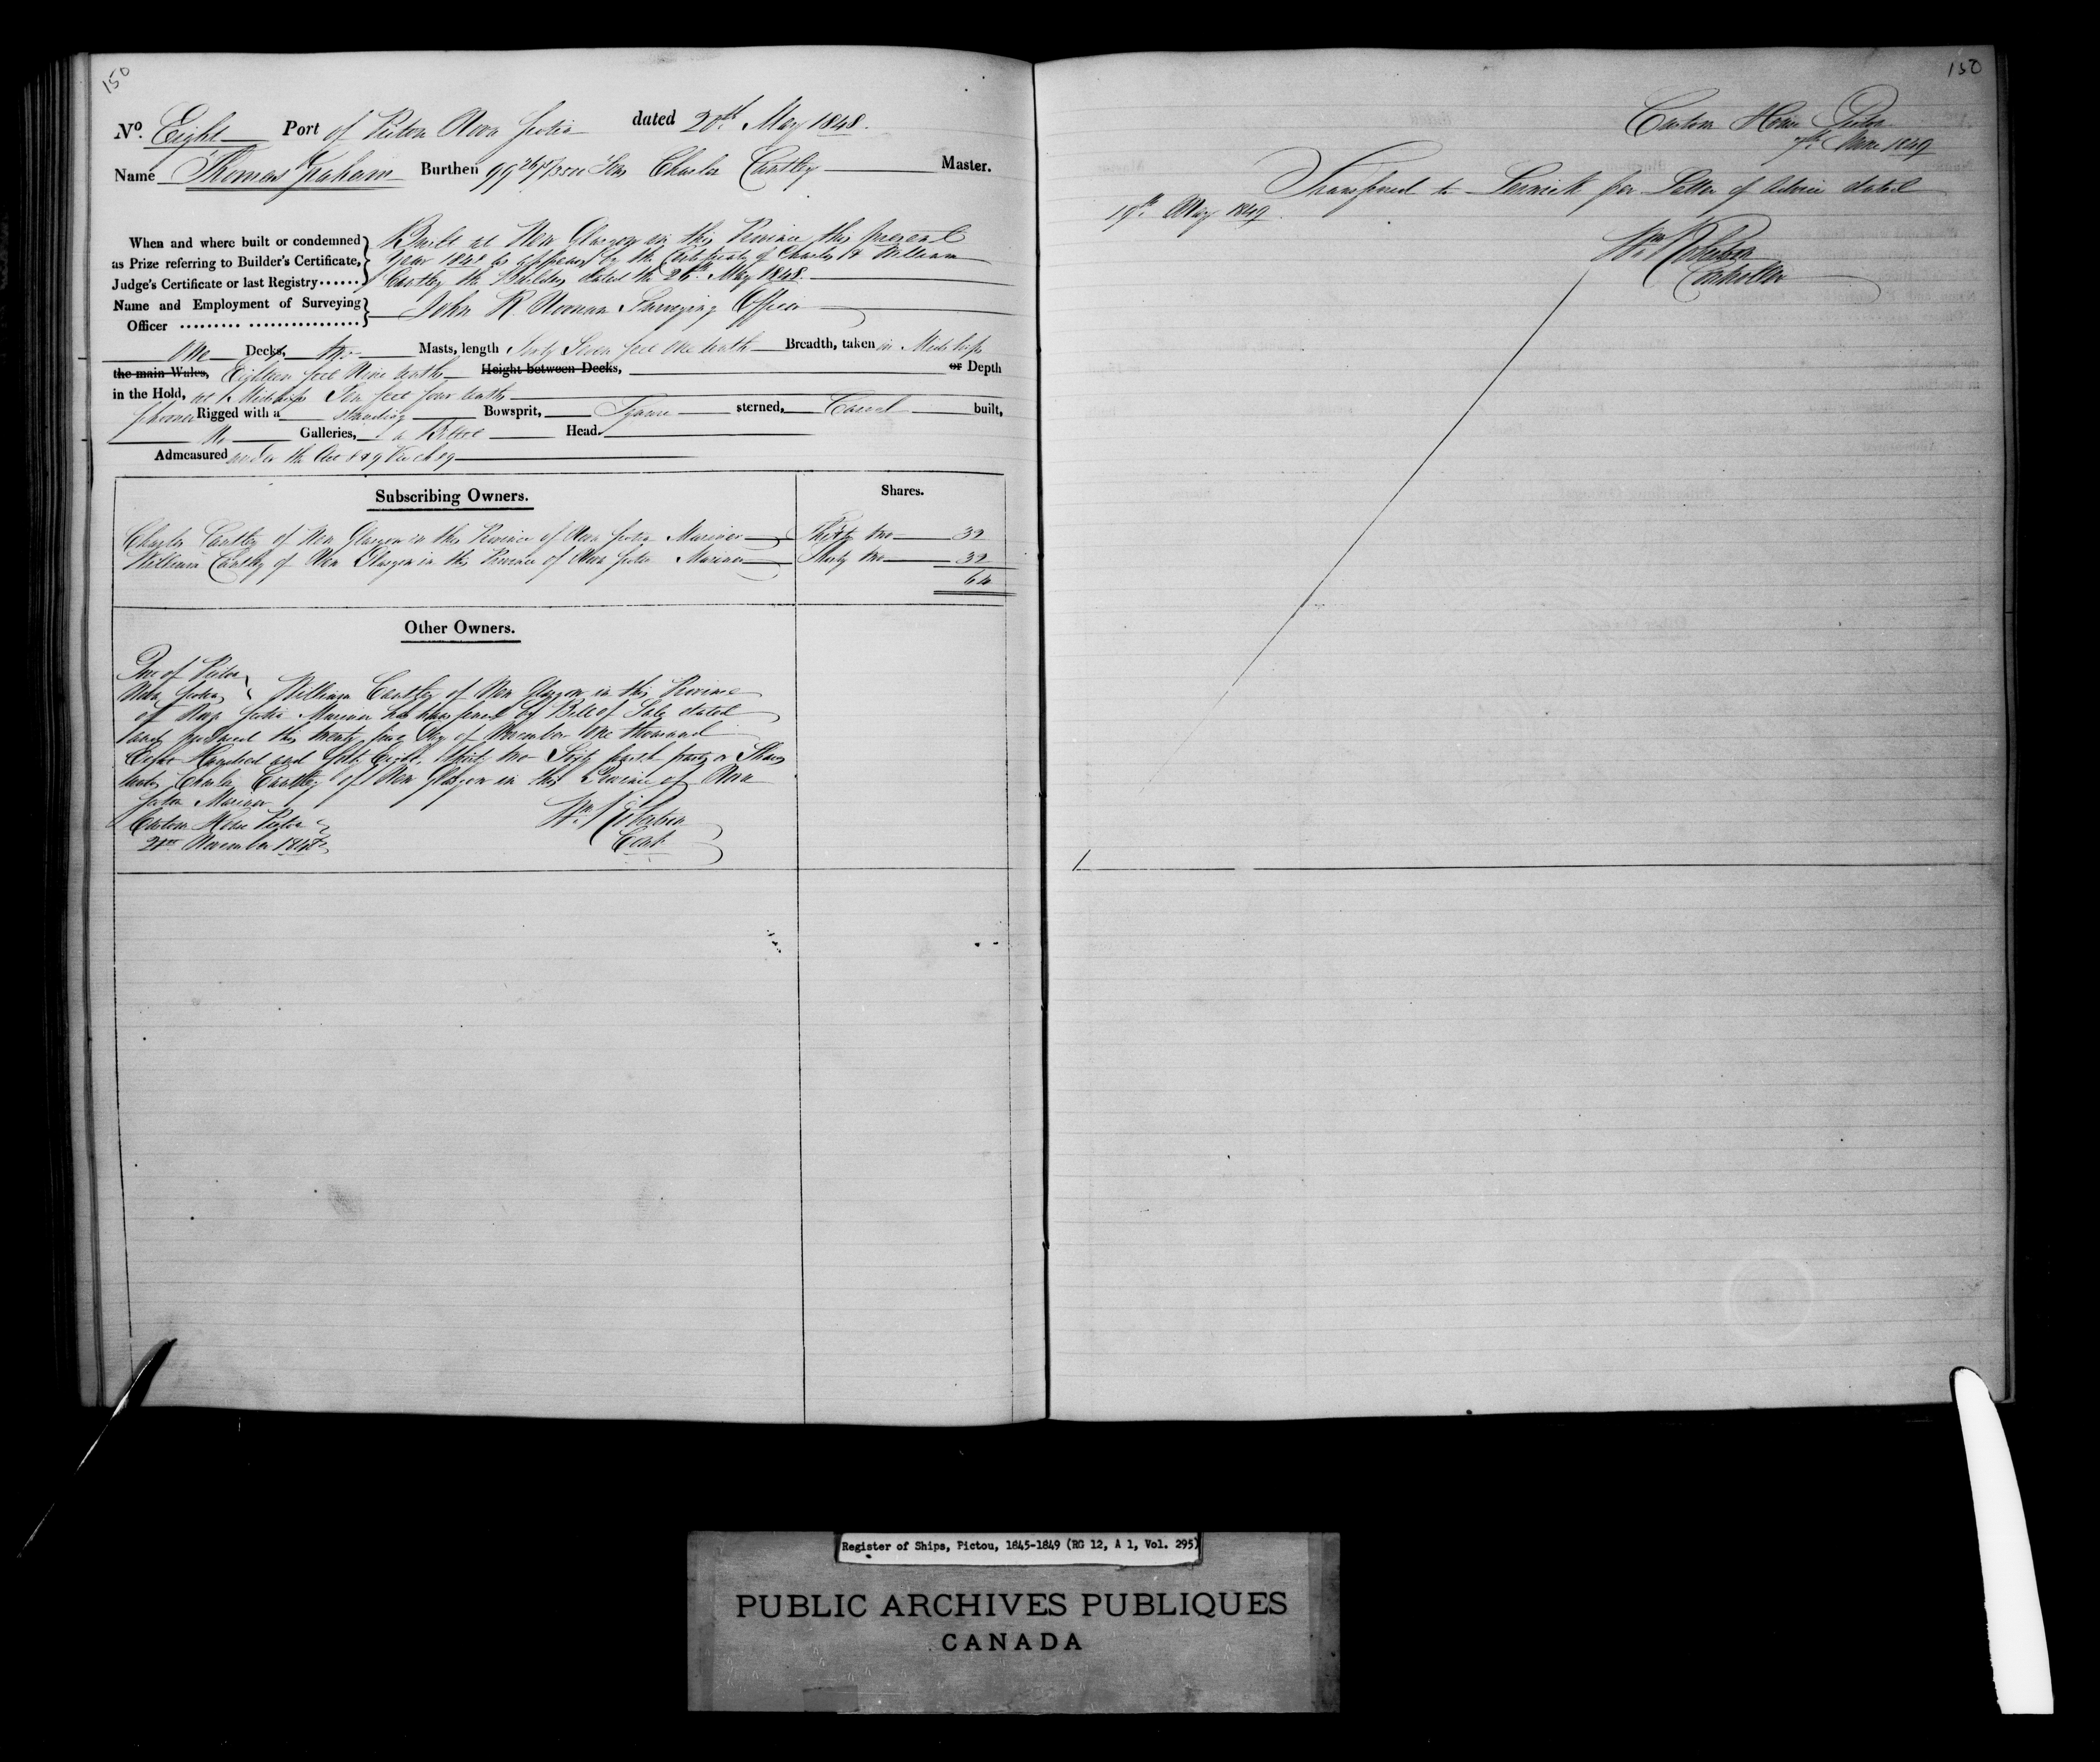 150
No. Eight Port of Pictou Nova Scotia dated 20th May 1848.
Name Thomas Graham Burthen 99 Tons Charles Cantley Master.
When and where built or condemned as Prize referring to Builder's Certificate, Judge's Certificate or last Registry......
Built at New Glasgow in this Province this present
Year 1848 as appears by the Certificate of Charles & William
Cantley the Builders dated the May 1848.
Name and Employment of Surveying Officer ......... ..................
John R Noonan Surveying Officer
One Decks, two Masts, length Sixty Seven feet one tenth Breadth, taken in Midships
the main Wales, Eighteen feet Nine tenths Height between Decks, or Depth
in the Hold, at Midships Ten feet four tenths
Schooner Rigged with a standing Bowsprit, Square sterned, Carvel built,
No Galleries, a Billet Head.
Admeasured under the Act 8 & 9 Vic ch 89
Subscribing Owners. Shares.
Charles Cantley of New Glasgow in this Province of Nova Scotia Mariner Thirty two 32
William Cantley of New Glasgow in this Province of Nova Scotia Mariner Thirty two 32
64
Other Owners.
of Pictou
Nova Scotia William Cantley of New Glasgow in this Province
of Nova Scotia Mariner has transferred by Bill of Sale dated
and produced this twenty first Day of November One thousand
Eight Hundred and forty Eight, Thirty two Sixty fourth parts or Shares
unto Charles Cantley of New Glasgow in this Province of Nova
Scotia Mariner
Custom House Pictou
21st November 1848
Wm Robertson
Cont
150
Custom House Pictou
7th June 1849
Transferred to Lerwick per Letter of Advice dated
19th May 1849.
Wm Robertson
Controller
Register of Ships, Pictou, 1845-1849 (RG 12, A 1, Vol. 295)
PUBLIC ARCHIVES PUBLIQUES
CANADA